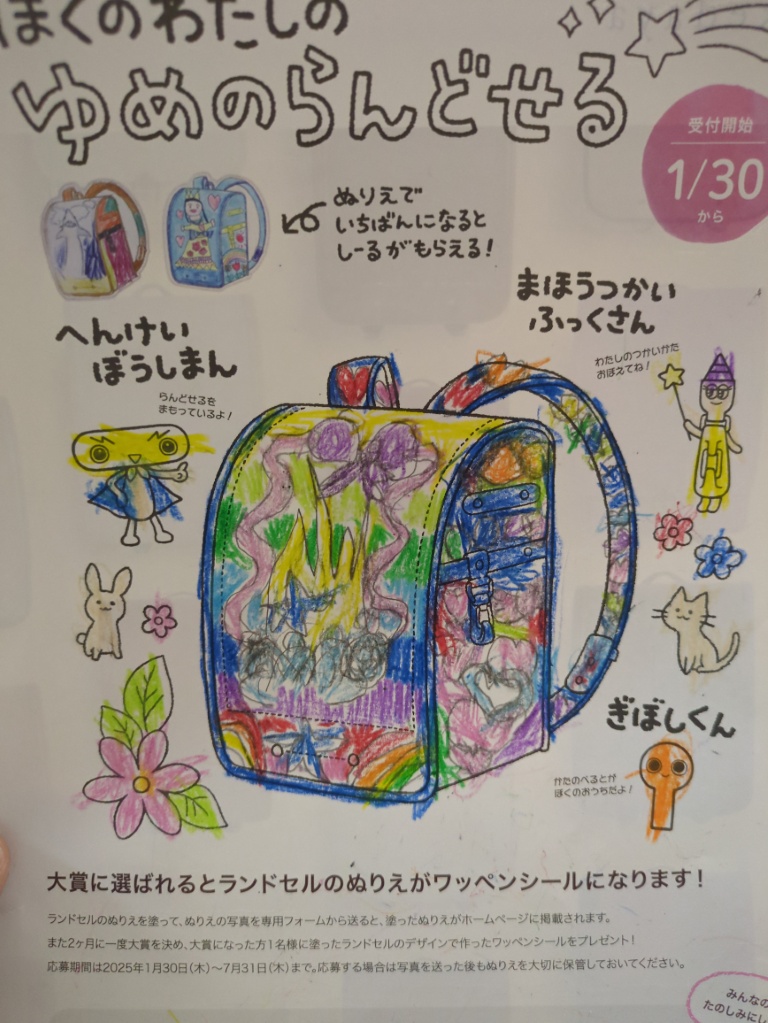 ぼくのわたしの
ゆめのらんどせる
受付開始
1/30
から
ぬりえで
いちばんになると
しーるがもらえる！
まほうつかい
ふっくさん
わたしのつかいかた
おぼえてね！
へんけい
ぼうしまん
らんどせるを
まもっているよ！
ぎぼしくん
かたのべるとが
ぼくのおうちだよ！
大賞に選ばれるとランドセルのぬりえがワッペンシールになります！
ランドセルのぬりえを塗って、ぬりえの写真を専用フォームから送ると、塗ったぬりえがホームページに掲載されます。
また2ヶ月に一度大賞を決め、大賞になった方1名様に塗ったランドセルのデザインで作ったワッペンシールをプレゼント！
応募期間は2025年1月30日（木）〜7月31日（木）まで。応募する場合は写真を送った後もぬりえを大切に保管しておいてください。
みんなの
たのしみにし